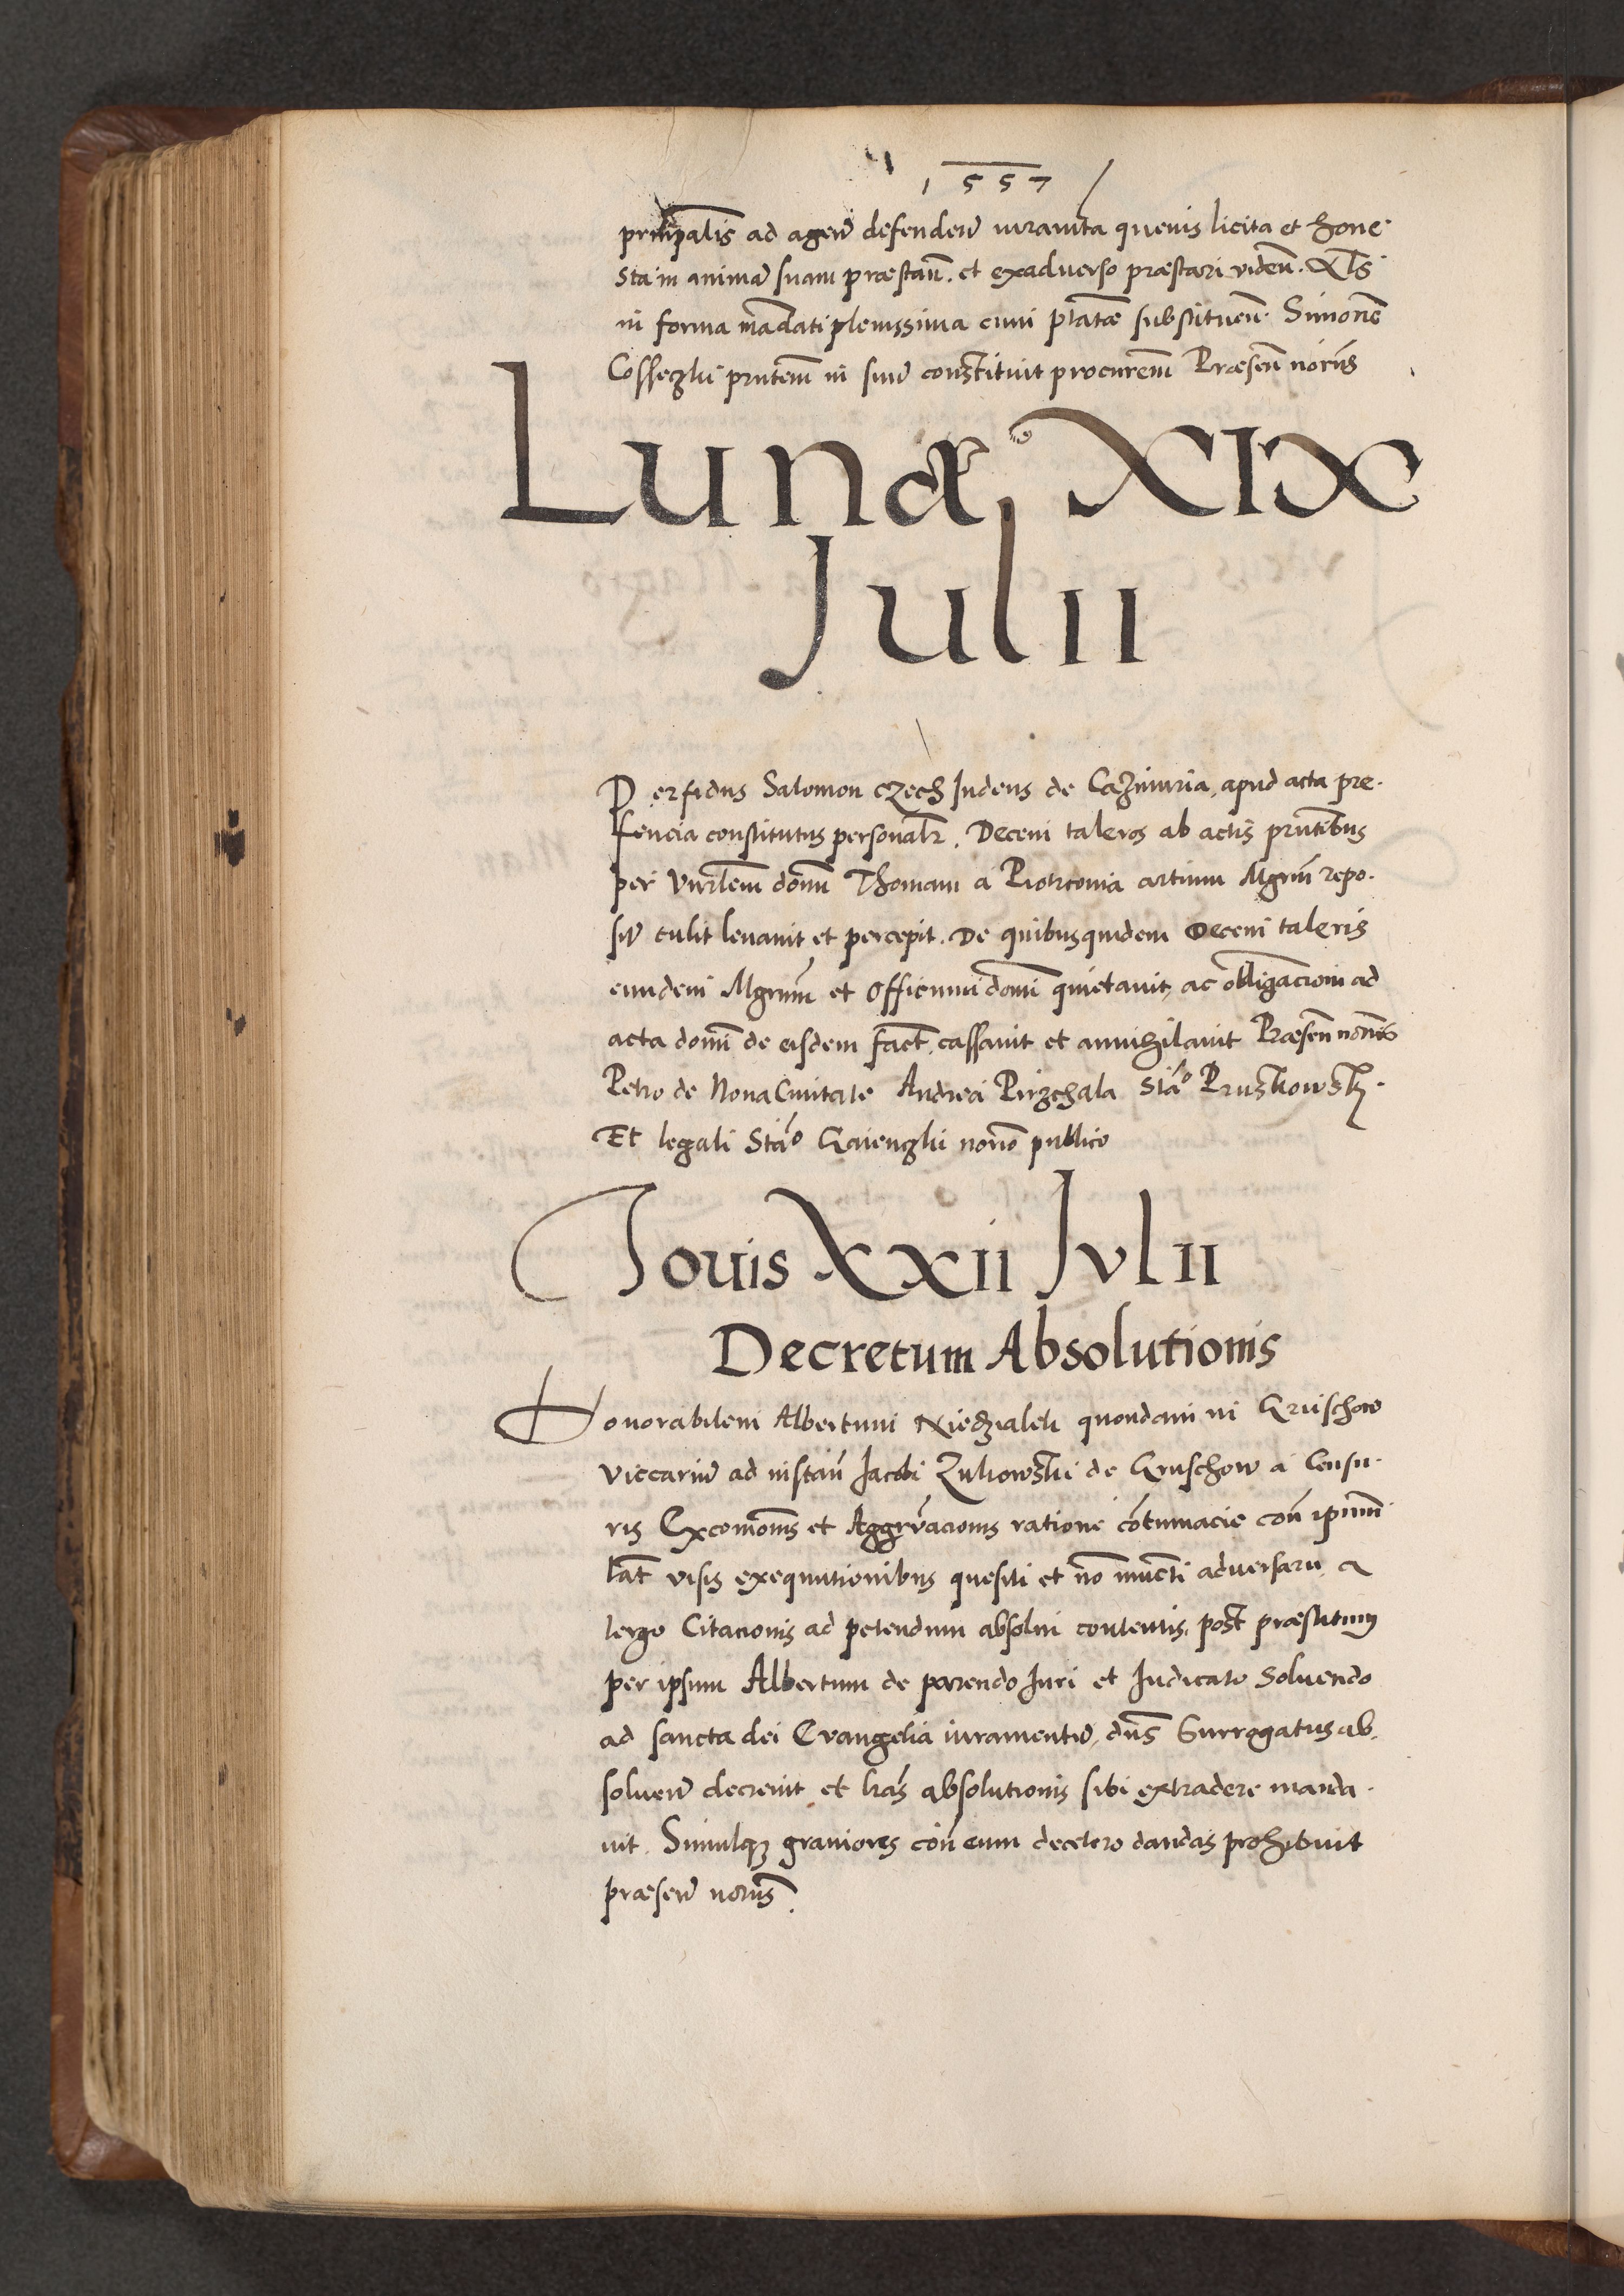 1557
prinpalis ad agen̄ defenden̄ iuramta quevis licita et hone·
sta in animā suam præstan̄. et exadverso præstari viden̄. Als
in forma mādati plenissima cum ptātæ substituen̄ Simonē
Cosseczki pn̄tem in suū constituit procurem̄ Præsen̄ nōrijs
Lunæ XIX
Julii
Perfidus Salomon Czech Judeus de Cazimiria, apud acta pre·
sencia constitutus personalr̄. Decem taleros ab actis pn̄tibus
per Vn̄rlem dom̄ Thomam a Piotrconia artium Mgrm̄ repo·
sit̄ tulit levavit et percepit. De quibusquidem Decem taleris
eundem Mgrum̄ et Officium dom̄ quietavit, ac obligāciom ad
acta dom̄ de eisdem fact̄. cassavit et annihilavit Præsen̄
Petro de Nova Civitate Andrea Pirzchala Stāo Pruszkowsk̄·
Et legali Stāo nōrio publico
Jovis XXII Julii
Decretum Absolutionis
Honorabilem Albertum Niedzialek quondam in Gruschow
Viccariū ad instan̄ Jacobi Zukowski de Gruschow a Censu·
ris Excomōnis et Aggrāvacionis ratione cōtumacie con̄ ipum̄
lat̄ visis exequutionibus quesiti et nō inuēti adversarii a
tergo Citacionis ad petendum absolvi contentis, post præstitum
per ipsum Albertum de parendo Juri et Judicato Solvendo
ad sancta dei Evangelia iuramentū, dn̄s Surrogatus ab·
solven̄ decrevit et lr̄as absolutionis sibi extradere manda·
vit. Simulq̨ graviores con̄ eum decetero dandas prohibuit
præsen̄ nōrijs.